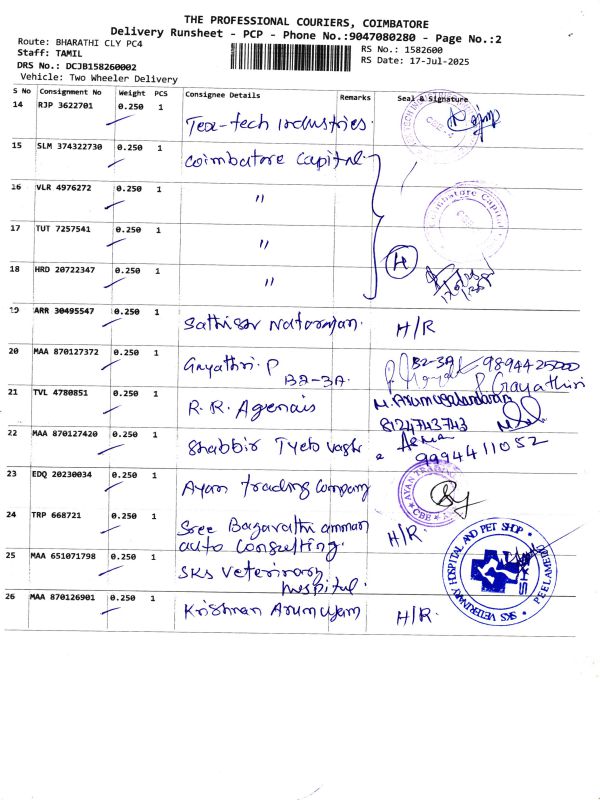 THE PROFESSIONAL COURIERS, COIMBATORE
Delivery Runsheet - PCP - Phone No.:9047080280 - Page No.:2
Route: BHARATHI CLY PC4
Staff: TAMIL
DRS No.: DCJB158260002
Vehicle: Two Wheeler Delivery
RS No.: 1582600
RS Date: 17-Jul-2025
S No Consignment No Weight PCS Consignee Details Remarks Seal & Signature
14 RJP 3622701 0.250 1
Tex-tech industries.
15 SLM 374322730 0.250 1
Coimbatore Capital.
16 VLR 4976272 0.250 1
"
Coimbatore Capital
17 TUT 7257541 0.250 1
"
18 HRD 20722347 0.250 1
"
H
19 ARR 30495547 0.250 1
Sathisar Natarajan. H/R
20 MAA 870127372 0.250 1
Gayathri.P B2-3A 9894425000
B2-3A. P. Gayathiri
21 TVL 4780851 0.250 1
R.R. Agencis
8124743743
22 MAA 870127420 0.250 1
Shabbir
9994411052
23 EDQ 20230034 0.250 1
Ayan trading company
AYAN TRADING
CBE
24 TRP 668721 0.250 1
Sree Bagavathi amman H/R.
auto Consulting.
25 MAA 651071798 0.250 1
SKS Veterinary
hospital.
SKS VETERINARY HOSPITAL AND PET SHOP
PEELAMEDU
SKS
26 MAA 870126901 0.250 1
Krishnan Arumugam H/R.